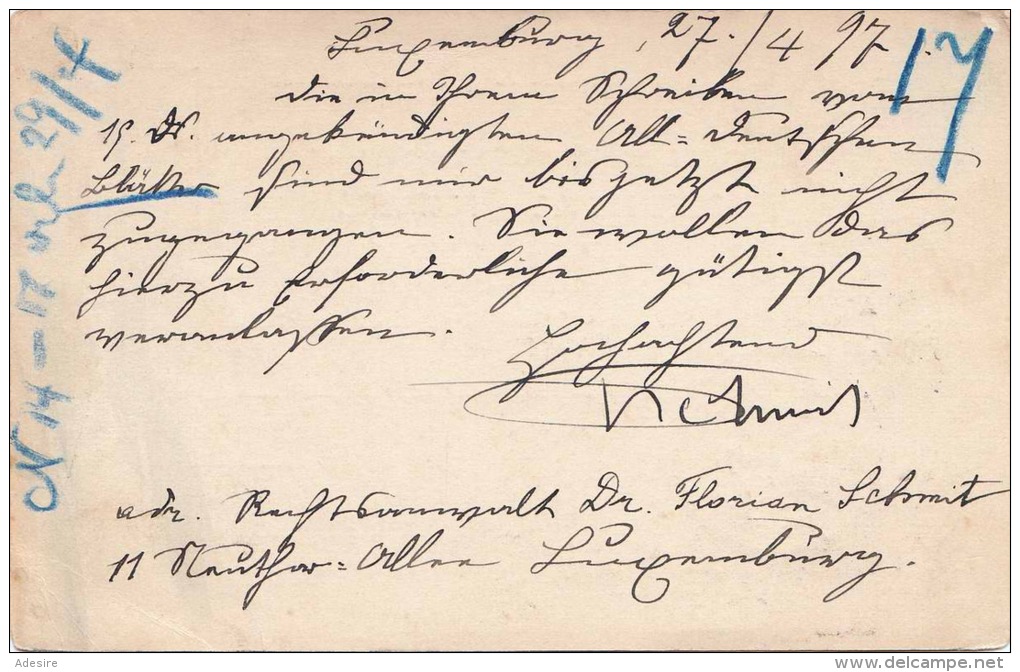 Luxemburg, 27./4 97.
17
die in Ihrem Schreiben vom
19. ds. angekündigten All=deutschen
Blätter sind mir bis jetzt nicht
zugegangen. Sie wollen das
hierzu Erforderliche gütigst
veranlassen.
Hochachtend
Schmit
adr. Rechtsanwalt Dr. Florian Schmit
11 Neuthor=Allee Luxemburg.
N 14 – 17 29/4
Adesire
delcampe.net